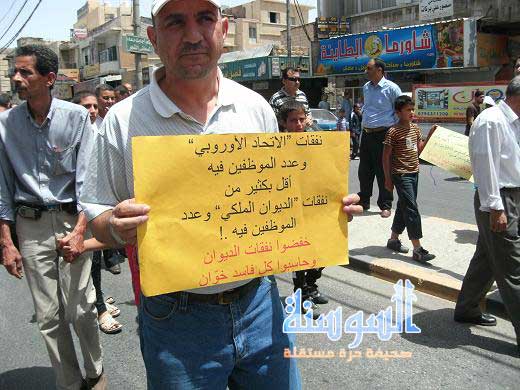 شاورما الطازج
نفقات "الاتحاد الأوروبي"
وعدد الموظفين فيه
أقل بكثير من
نفقات "الديوان الملكي" وعدد
الموظفين فيه .!
خفضوا نفقات الديوان
وحاسبوا كل فاسد خوّان
السوسنة
صحيفة حرة مستقلة